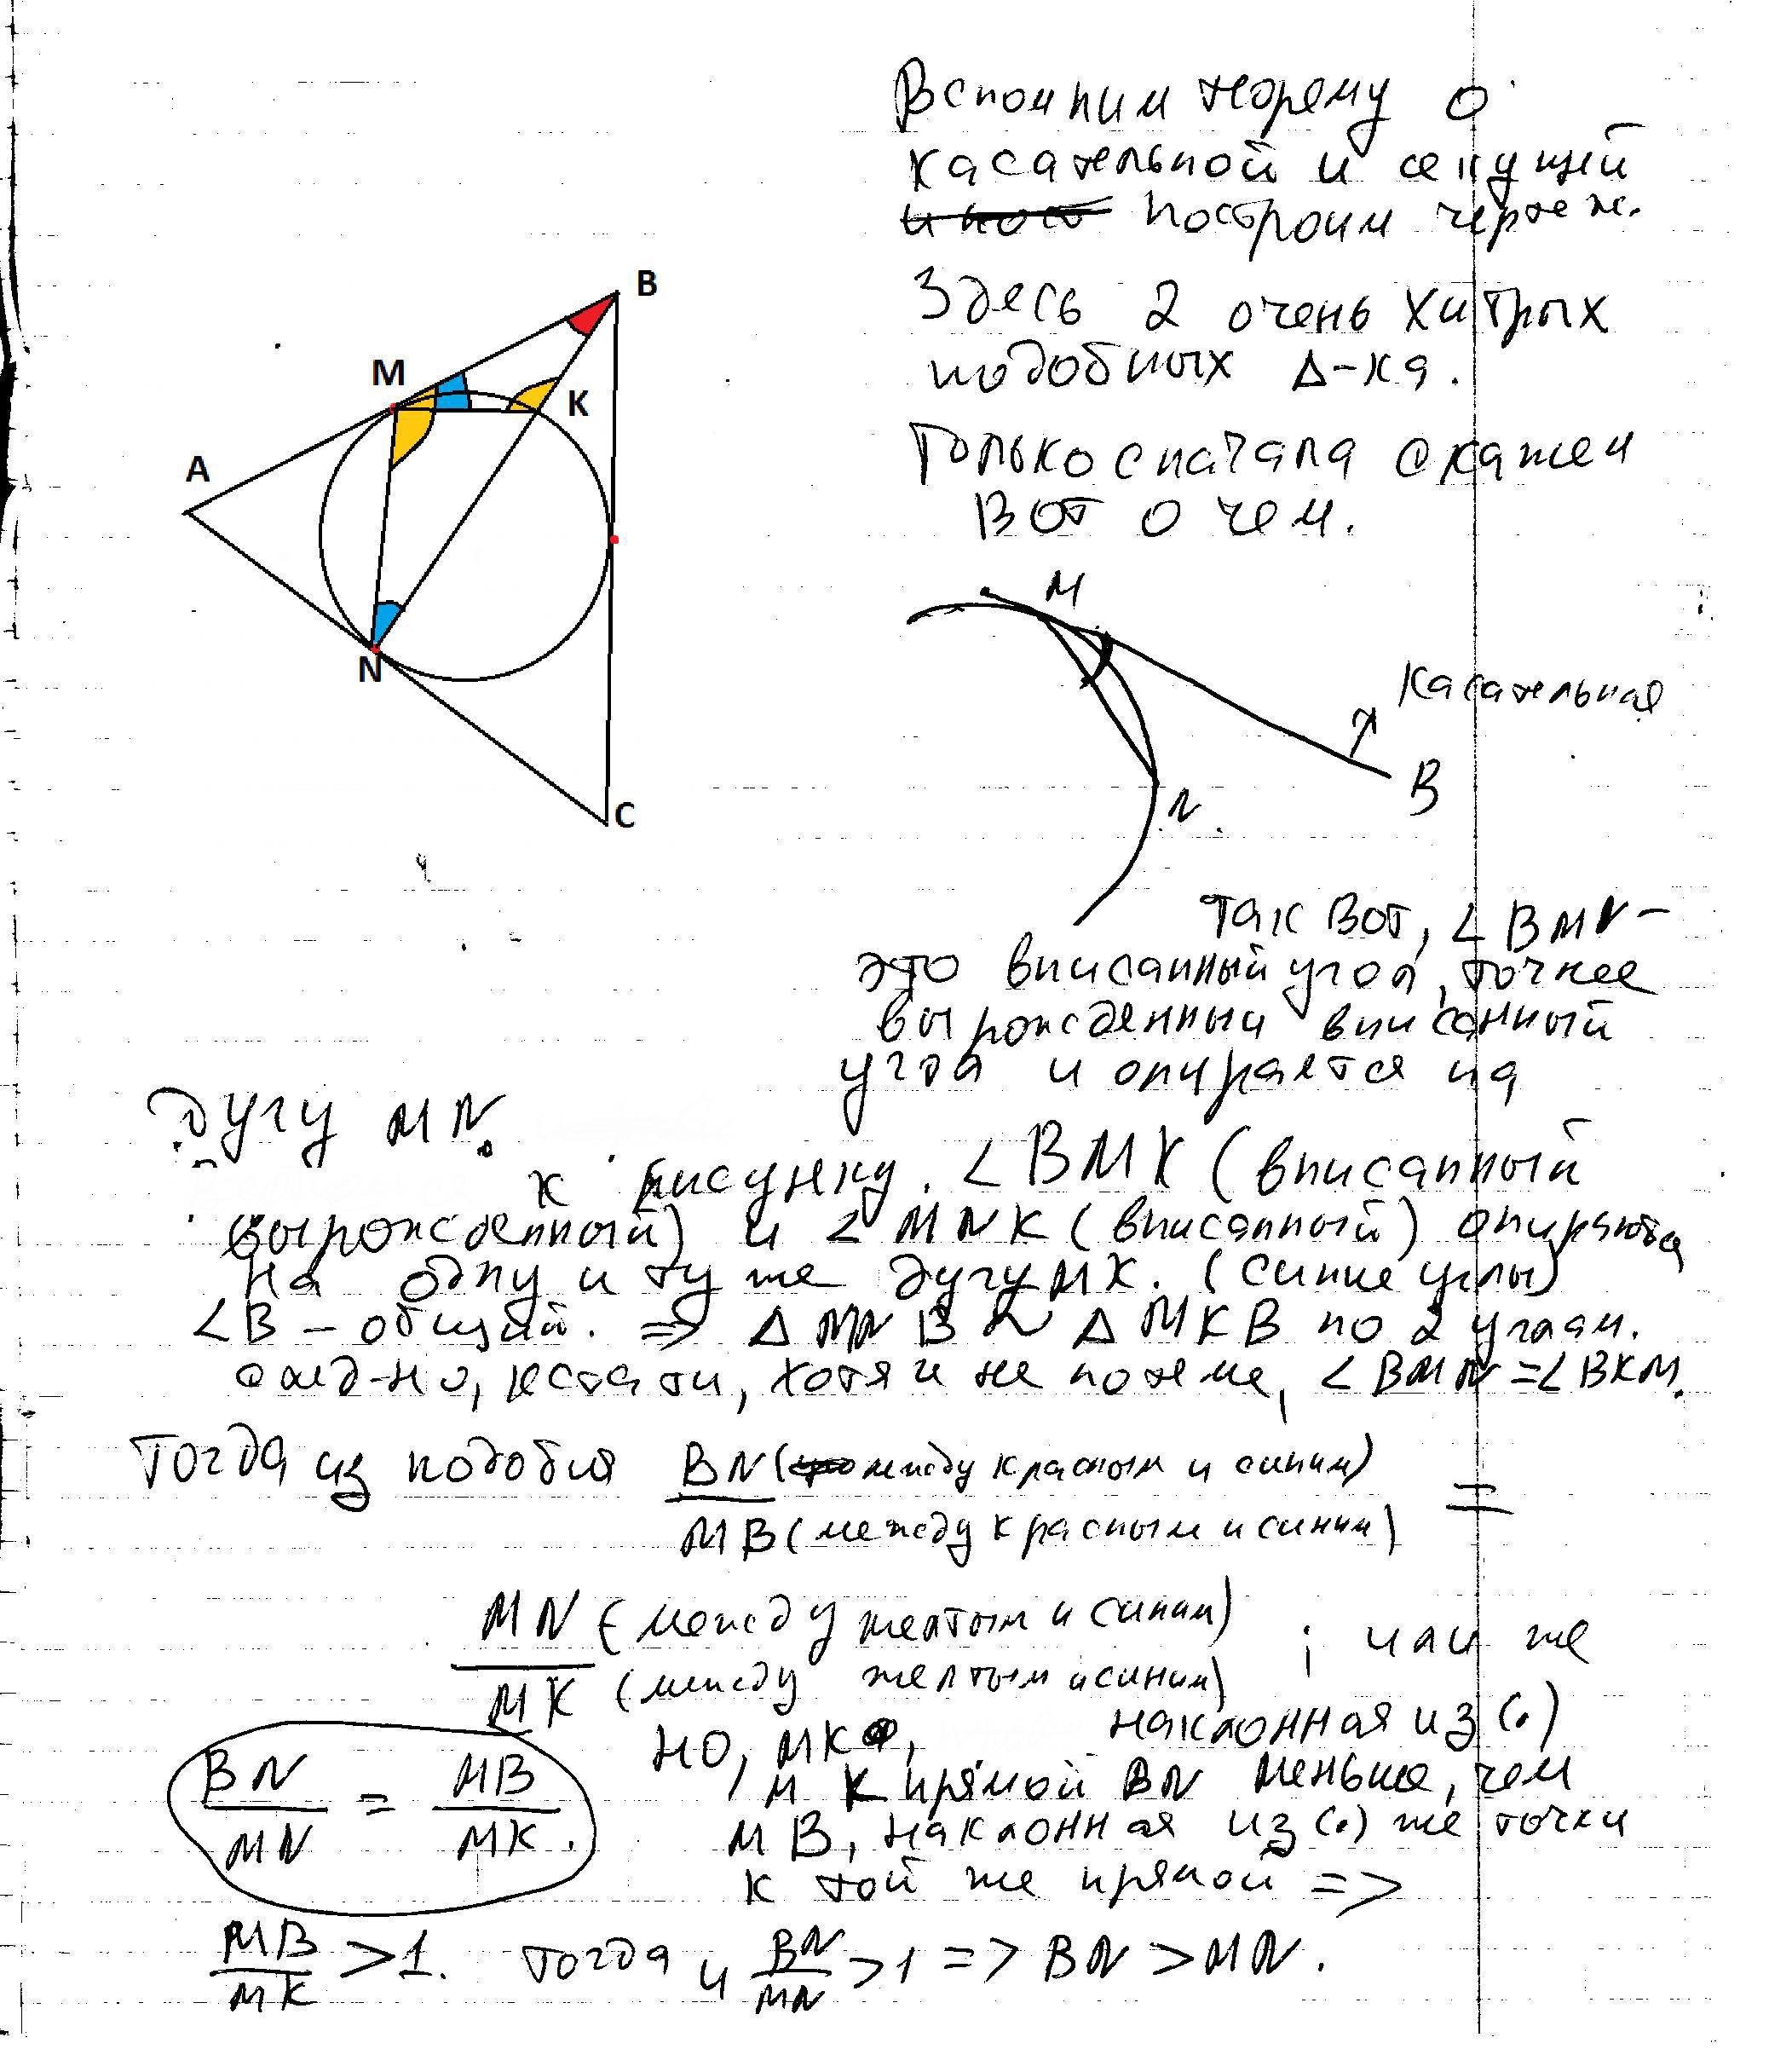 Вспомним теорему о
касательной и секущей
построим чертеж.
Здесь 2 очень хитрых
подобных Δ-ка.
Только сначала скажем
вот о чем.
B
M
K
A
N
C
M
касательная
B
N
Так вот, ∠BMN -
это вписанный угол, точнее
вырожденный вписанный
угол и опирается на
дугу MN.
К рисунку. ∠BMK (вписанный
вырожденный) и ∠MNK (вписанный) опираются
на одну и ту же дугу MK. (синие углы)
∠B - общий. => Δ MNB ~ Δ MKB по 2 углам.
след-но, кстати, хотя и не по теме, ∠BMN = ∠BKM.
Тогда из подобия BN (между красным и синим) =
MB (между красным и синим)
MN (между желтым и синим) ; или же
MK (между желтым и синим)
BN/MN = MB/MK.
но, MK, наклонная из (.)
M к прямой BN меньше, чем
MB, наклонная из (.) же точки
к той же прямой =>
MB/MK > 1. Тогда и BN/MN > 1 => BN > MN.